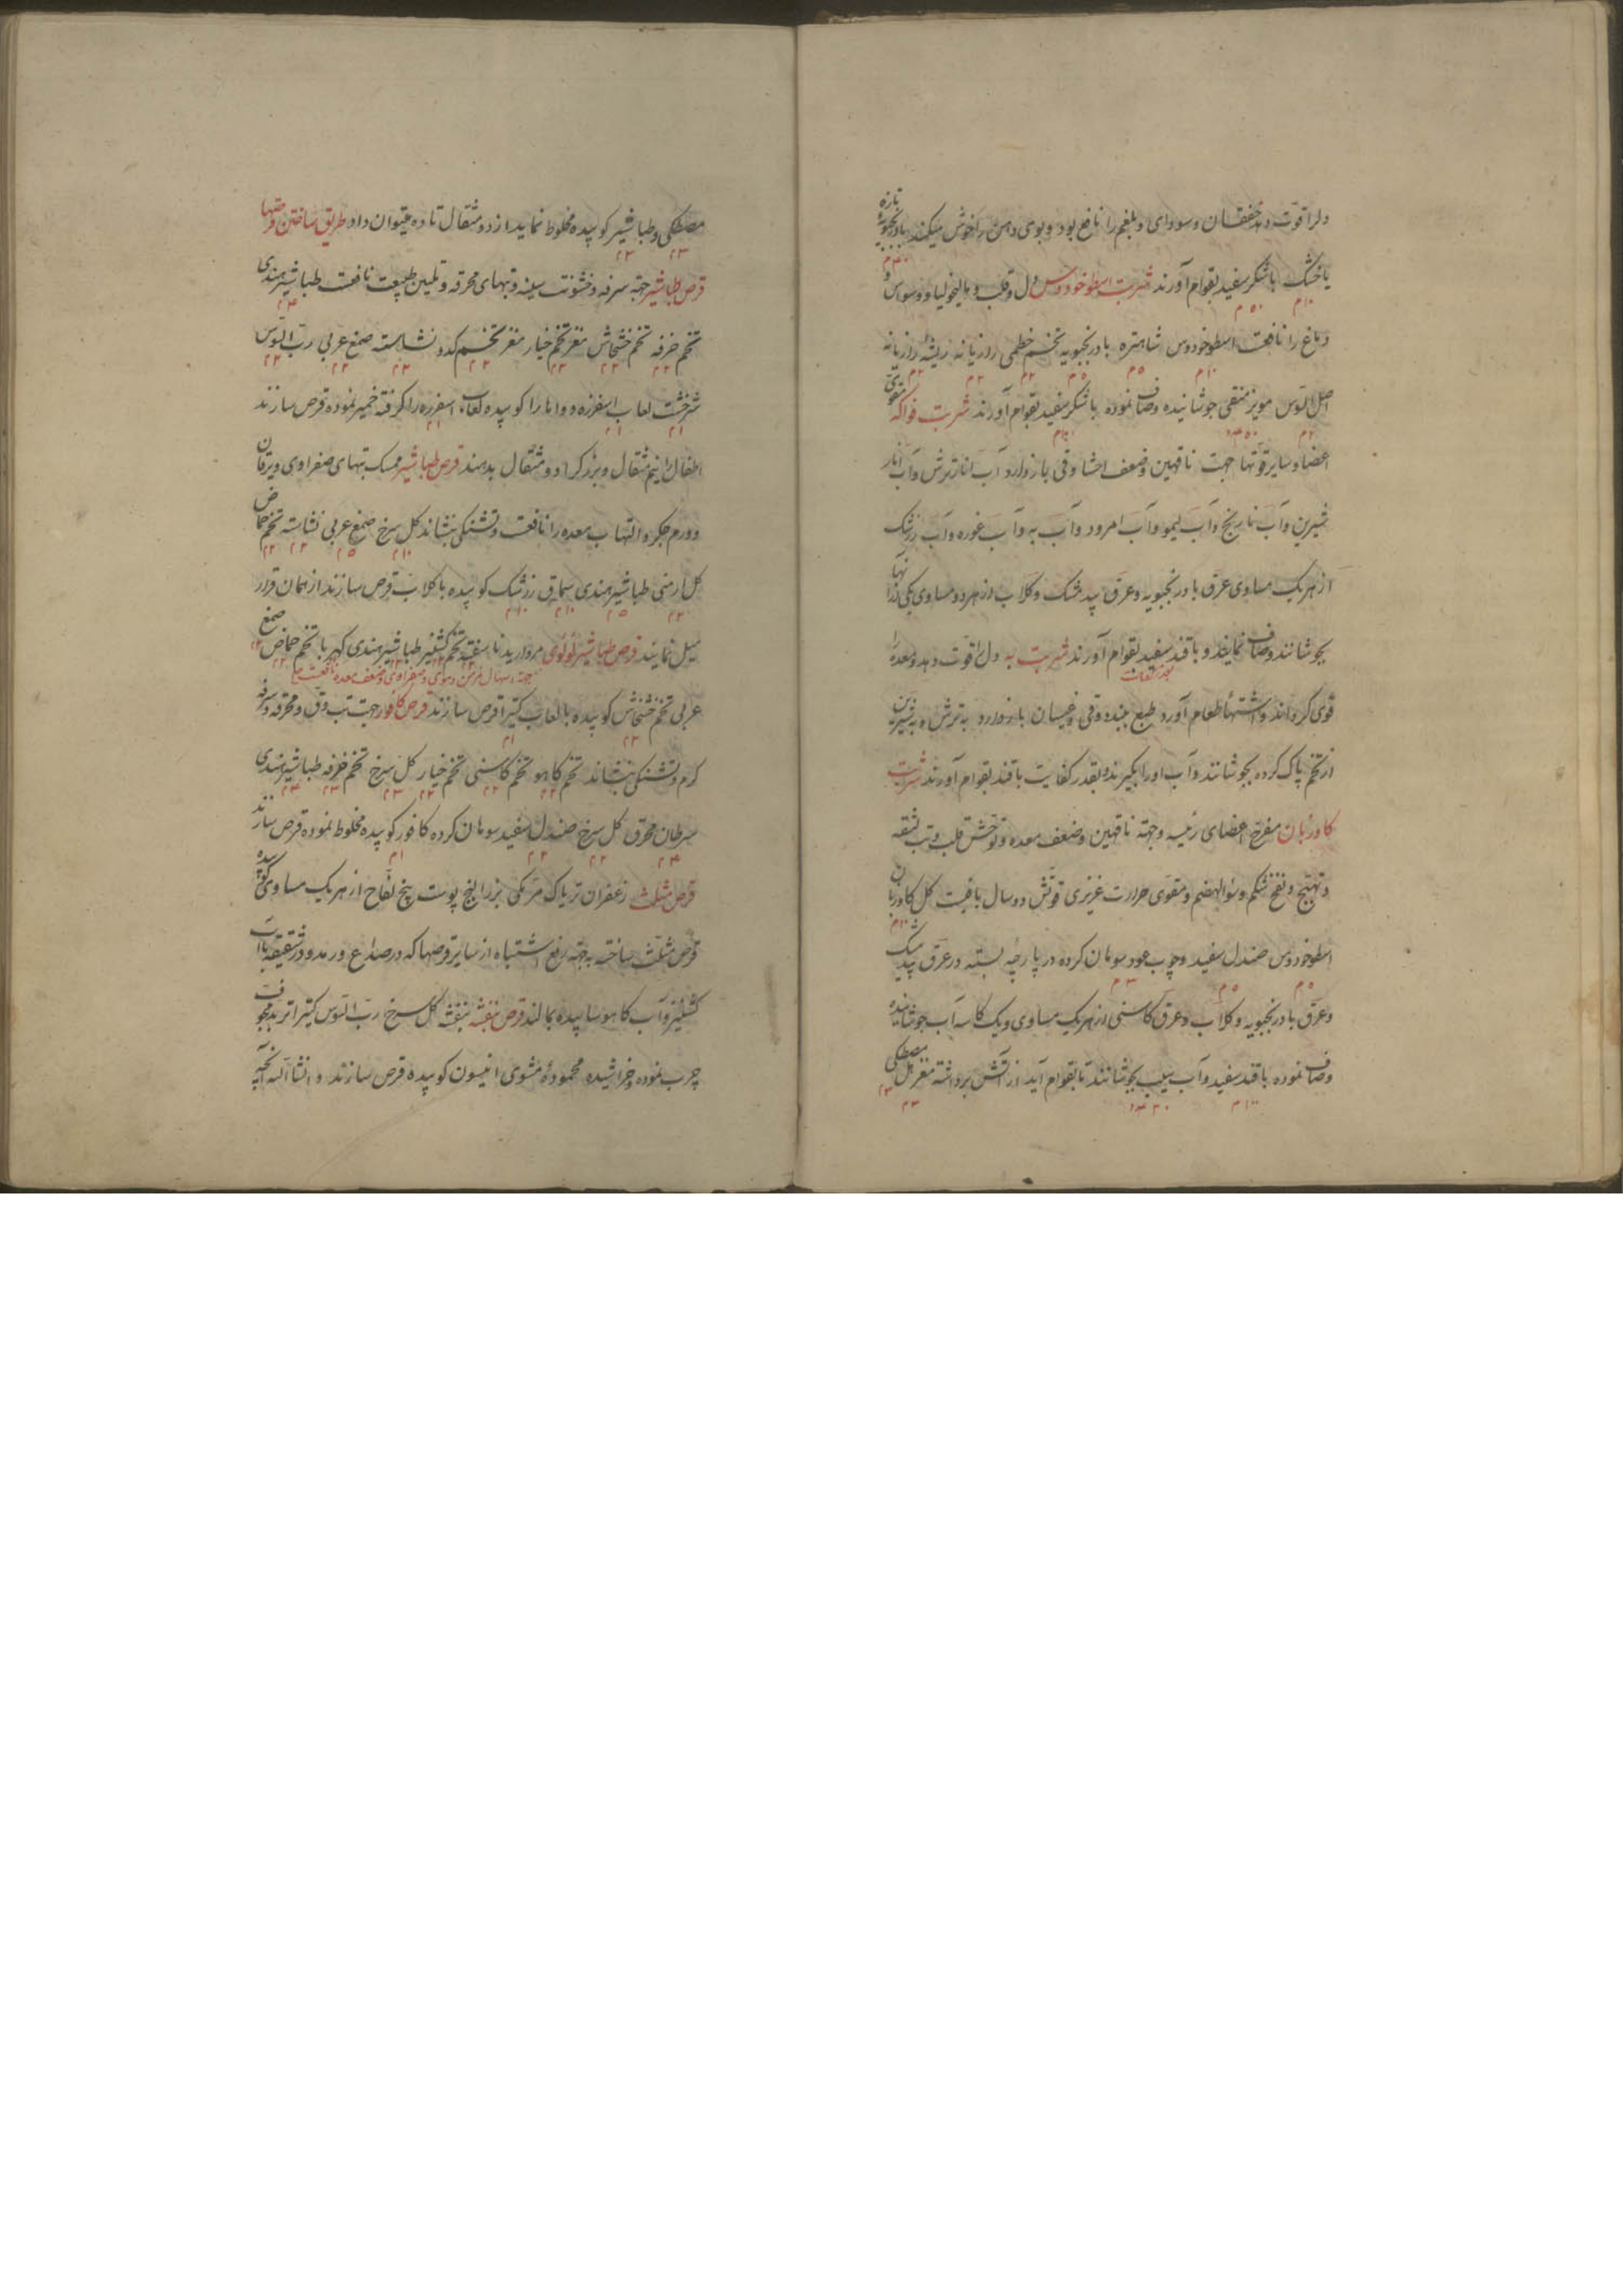 دلرا قوّت دهد خفقان سوداوی و بلغمی را نافع بود و بوی دهن را خوش میکند بادرنجبویه تازه
یا خشک با شکر سفید بقوام آورند شربت اسطوخودوس دل و قلب و مالیخولیا و وسواس و
دماغ را نافعست اسطوخودوس شاهتره بادرنجبویه تخم خطمی رازیانه ریشه رازیانه
اصل السوس مویز منقی جوشانیده و صاف نموده با شکر سفید بقوام آورند شربت فواکه مقوّی
اعضا و سایر قوّتها جهت ناقهین و ضعف احشا و قی بازدارد آب انار ترش و آب انار
شیرین و آب نارنج و آب لیمو و آب امرود و آب به و آب غوره و آب زرشک
از هریک مساوی عرق بادرنجبویه و عرق بیدمشک و کلاب از هر دو مساوی یکی ازآنها
بجوشانند و صاف نمایند و با قند سفید بقوام آورند شربت به دل را قوّت دهد و معده را
قوی کرداند و اشتهأ طعام آورد و طبع ببندد و قی و غیسان بازدارد به ترش و به شیرین
از تخم پاک کرده بجوشانند و آب او را بگیرند و بقدر کفایت با قند بقوام آورند شربت
کاوزبان مفرّح اعضای رئیسه و جهته ناقهین و ضعف معده و توحّش قلب و تب
و تهیّج و نفخ شکم و سوٴ الهضم و مقوّی حرارت غریزی قوّتش دو سال باقیست کل کاوزبان
اسطوخودوس صندل سفید و چوب عود سوهان کرده در پارچه بسته در عرق بیدمشک
و عرق بادرنجبویه و کلاب و عرق کاسنی از هریک مساوی و یک کاسه آب جوشانیده
و صاف نموده با قند سفید و آب سیب بجوشانند تا بقوام آید از آتش برداشته مصطکی
مصطکی و طباشیر کوبیده مخلوط نمایند از دو مثقال تا ده میتوان داد طریق ساختن قرصها
قرص طباشیر جهته سرفه و خشونت سینه و تبهای محرقه و تلیین طبیعت نافعست طباشیر هندی
تخم خرفه تخم خشخاش مغز تخم خیار مغز تخم کدو نشاسته صمغ عربی ربّ السوس
شرخشت لعاب اسفرزه دواها را کوبیده لعاب اسفرزه را کرفته خمیر نموده قرص سازند
اطفال را نیم مثقال و بزرک را دو مثقال بدهند قرص طباشیر ممسک تبهای صفراوی و یرقان
و ورم جکر و التهاب معده را نافعست و تشنکی بنشاند کل سرخ صمغ عربی نشاسته تخم حماض
کل ارمنی طباشیر هندی سماق زرشک کوبیده با کلاب قرص سازند از همان قرار
میل نمایند قرص طباشیر لولوٴی مروارید ناسفته تخم کشنیز طباشیر هندی کهربا تخم حماض صمغ
جهته اسهال مزمن دموی و صفراوی و ضعف معده نافعست
عربی تخم خشخاش کوبیده با لعاب کتیرا قرص سازند قرص کافور جهت تب دق و محرقه و سرفه
کرم و تشنکی بنشاند تخم کاهو تخم کاسنی تخم خیار کل سرخ تخم خرفه طباشیر هندی
سرطان محرق کل سرخ صندل سفید سوهان کرده کافور کوبیده مخلوط نموده قرص سازند
قرص مثلث زعفران تریاک مرّ مکی بزر البنج پوست بیخ لفّاح از هریک مساوی کوبیده
قرص مثلّث ساخته بجهته رفع اشتباه از سایر قرصها که در صداع و رمد و در شقیقه با آب
کشنیز و آب کاهو سابیده بمالند قرص بنفشه بنفشه کل سرخ ربّ السوس کتیرا تربد مجوّف
چرب نموده و خراشیده محمودهٔ مشوی انیسون کوبیده قرص سازند و انشا الله آنچه